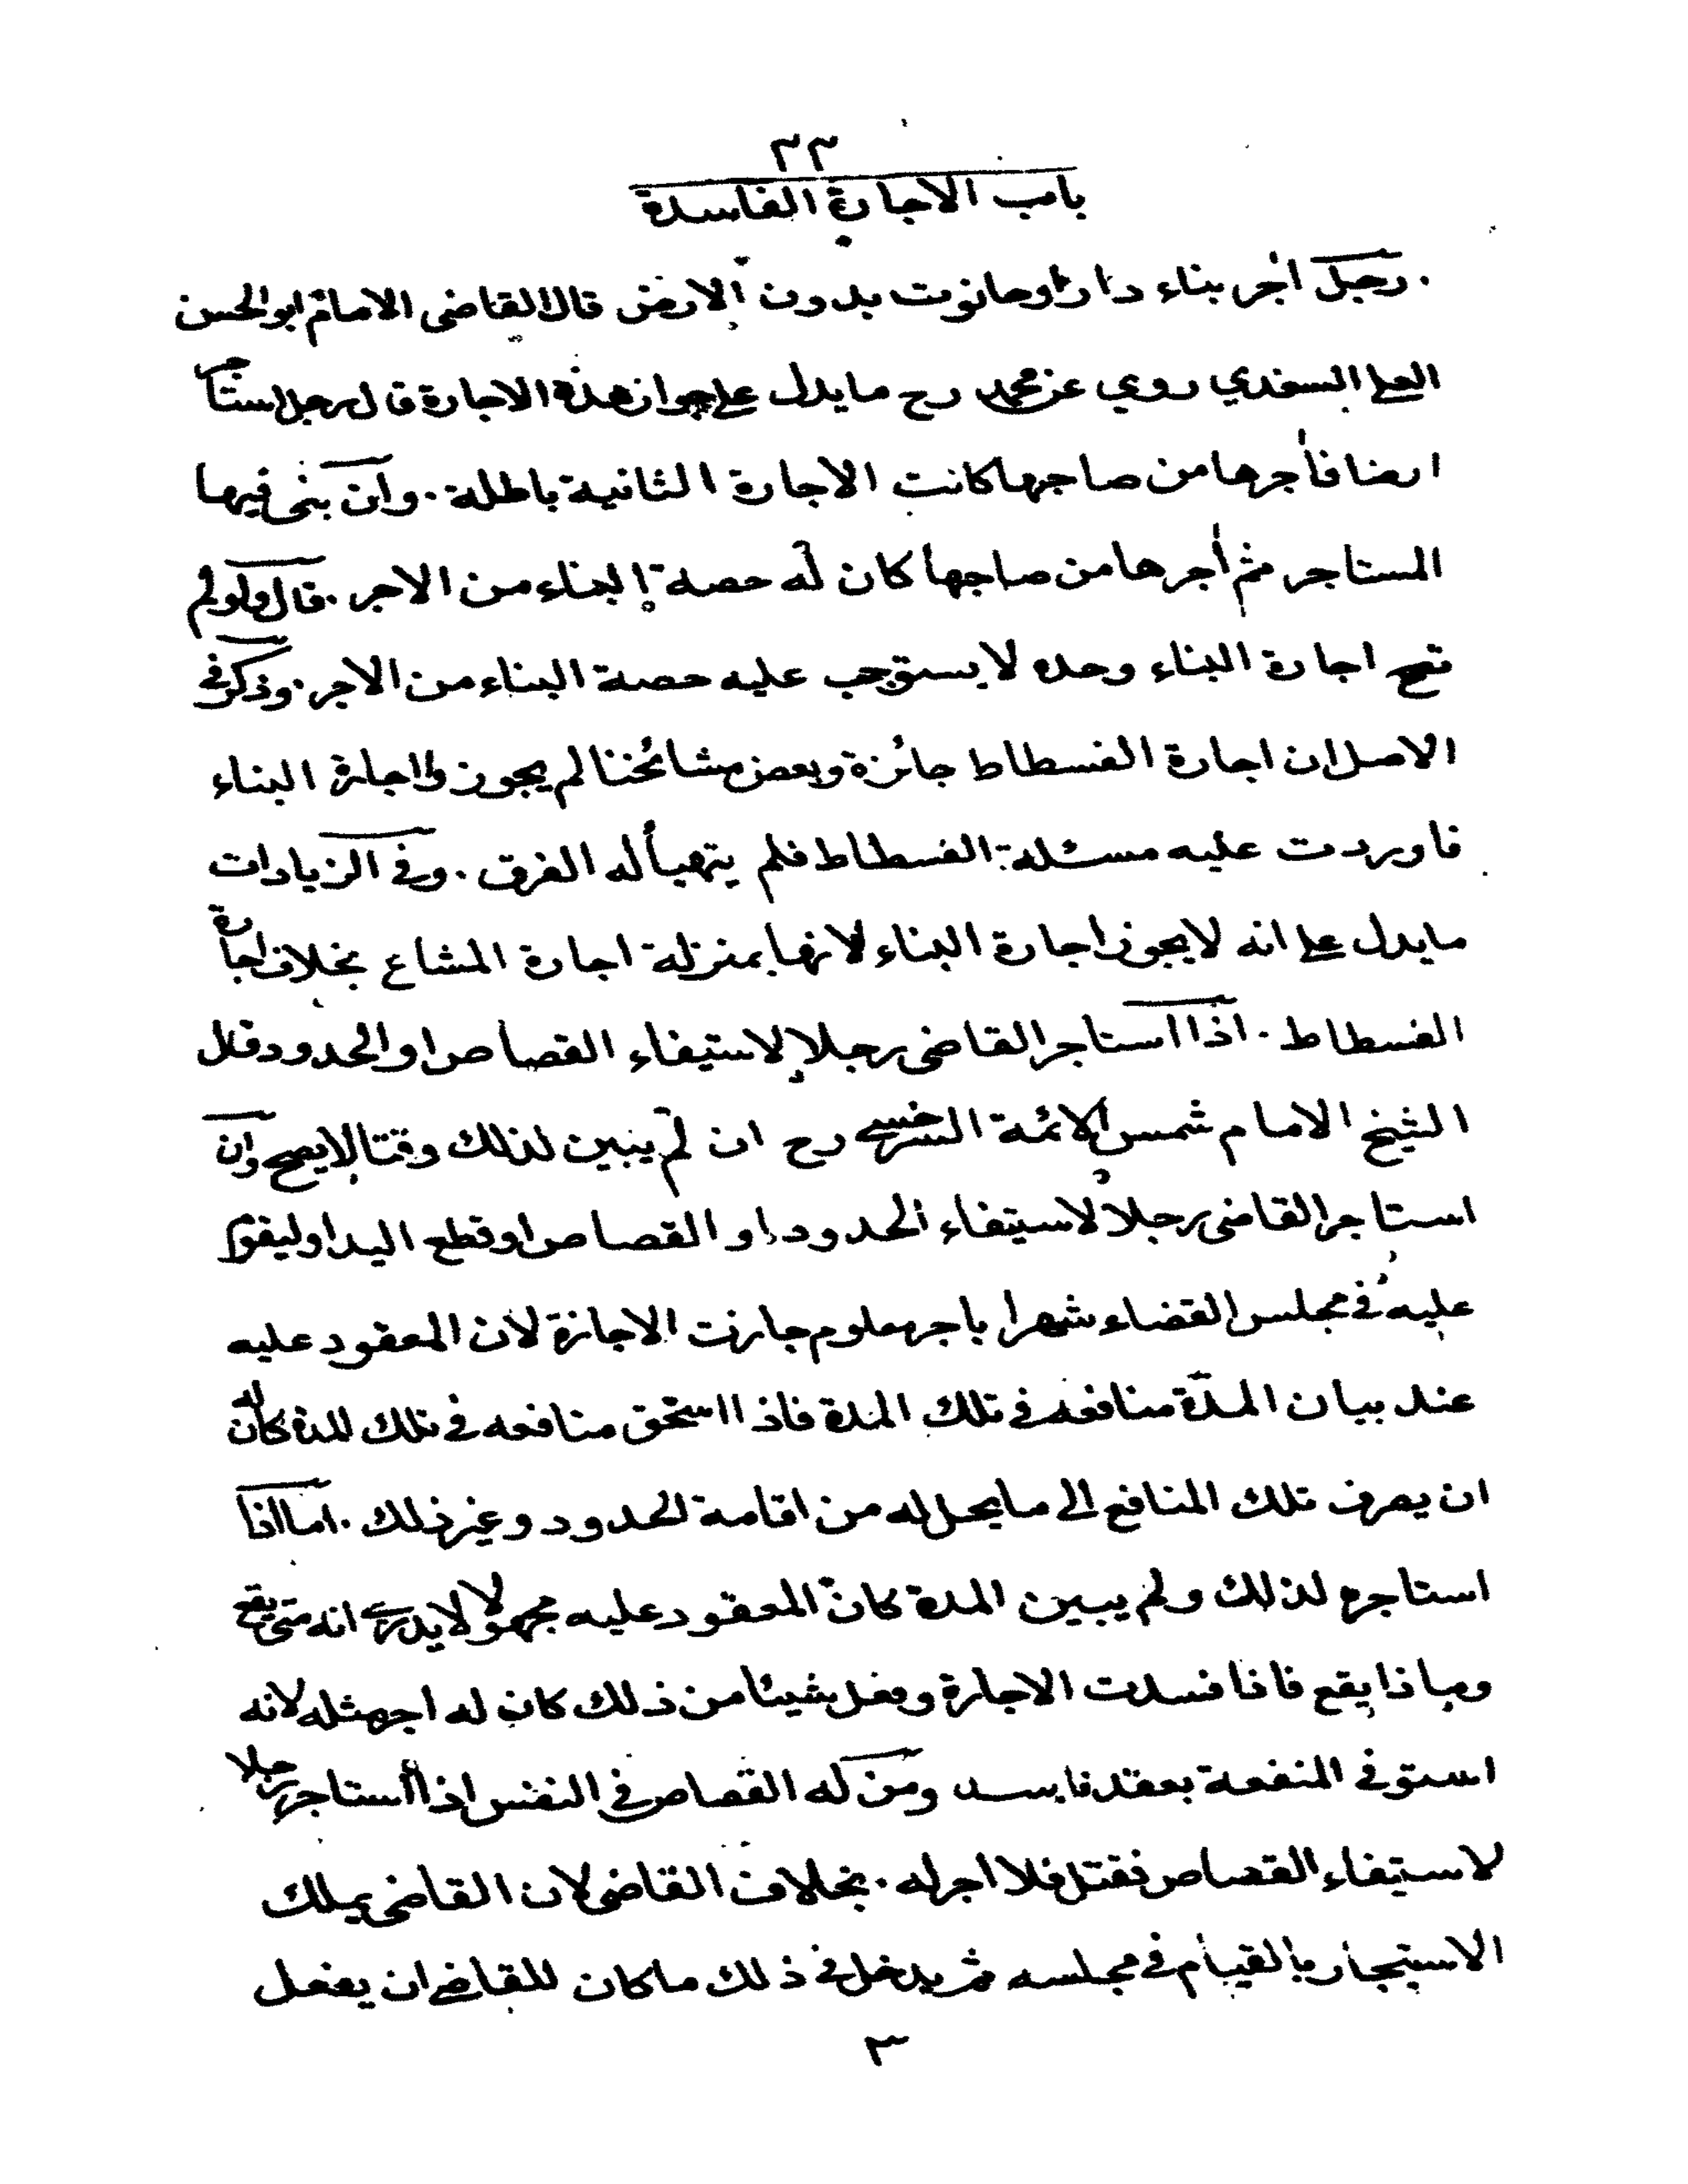 ٢٣
باب الاجارة الفاسدة
. رجل اٰجر بناء دار او حانوت بدون الارض قال القاضي الامام ابو الحسن
العلى السغدي روي عن محمد رح ما يدل على جواز هذه الاجارة قال رجل استاجر
ارضا فاٰجرها من صاحبها كانت الاجارة الثانية باطلة . وان بنى فيها
المستاجر ثم اٰجرها من صاحبها كان له حصة البناء من الاجر . قال ولو لم
تصح اجارة البناء وحده لا يستوجب عليه حصة البناء من الاجر . وذكر في
الاصل ان اجارة الفسطاط جائزة وبعض مشائخنا لم يجوزوا اجارة البناء
فاوردت عليه مسئلة الفسطاط فلم يتهيأ له الفرق . وفي الزيادات
ما يدل على انه لا يجوز اجارة البناء لانها بمنزلة اجارة المشاع بخلاف اجارة
الفسطاط . اذا استاجر القاضي رجلا لاستيفاء القصاص او الحدود قال
الشيخ الامام شمس الائمة السرخسي رح ان لم يبين لذلك وقتا لا يصح وان
استاجر القاضي رجلا لاستيفاء الحدود او القصاص او قطع اليد او ليقوم
عليه في مجلس القضاء شهرا باجر معلوم جازت الاجازة لان المعقود عليه
عند بيان المدة منافعه في تلك المدة فاذا استحق منافعه في تلك المدة كان له
ان يصرف تلك المنافع الى ما يحل له من اقامة الحدود وغير ذلك . اما اذا
استاجره لذلك ولم يبين المدة كان المعقود عليه مجهولا لا يدري انه متى يقع
وماذا يقع فاذا فسدت الاجارة وفعل شيئا من ذلك كان له اجر مثله لانه
استوفى المنفعة بعقد فاسد ومن له القصاص في النفس اذا استاجر رجلا
لاستيفاء القصاص فقتل فلا اجر له . بخلاف القاضي لان القاضي يملك
الاستيجار بالقيام في مجلسه ثم يدخل في ذلك ما كان للقاضي ان يفعل
٣